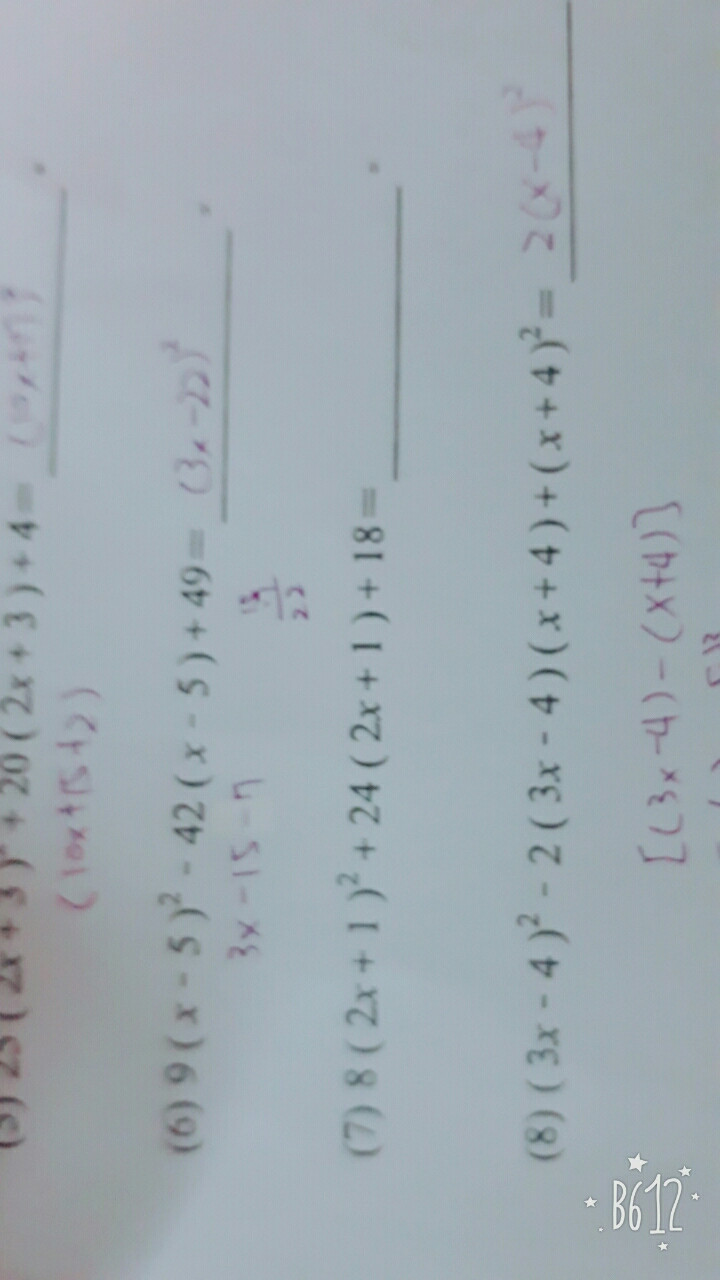 (5) 25 ( 2x + 3 )² + 20 ( 2x + 3 ) + 4 = (10x+17)²
(10x+15+2)
(6) 9 ( x - 5 )² - 42 ( x - 5 ) + 49 = (3x-22)²
3x-15-7
15
22
(7) 8 ( 2x + 1 )² + 24 ( 2x + 1 ) + 18 =
(8) ( 3x - 4 )² - 2 ( 3x - 4 ) ( x + 4 ) + ( x + 4 )² = 2(x-4)²
[(3x-4)-(x+4)]
B612